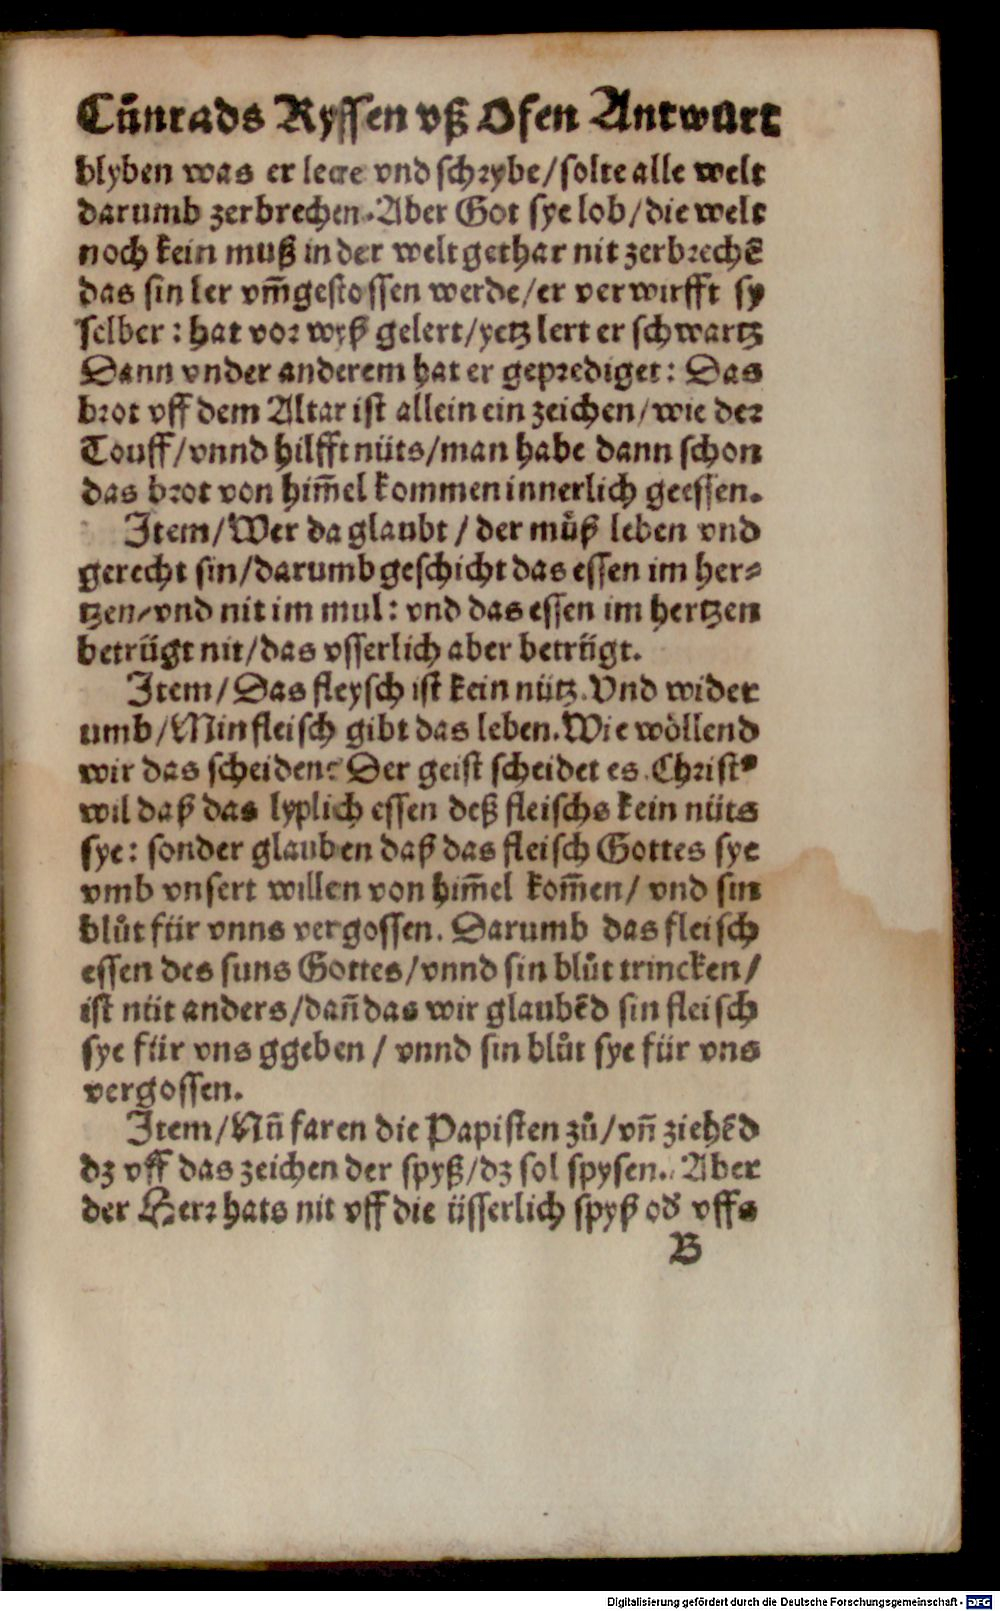 Cůnrads Ryssen vß Ofen Antwurt
blyben was er lere vnd schrybe/solte alle welt
darumb zerbrechen. Aber Got sye lob/die welt
noch kein muß in der welt gethar nit zerbrechē
das sin ler vm̄gestossen werde/er verwirfft sy
selber: hat vor wyß gelert/yetz lert er schwartz
Dann vnder anderem hat er geprediget: Das
brot vff dem Altar ist allein ein zeichen/wie der
Touff/vnnd hilfft nüts/man habe dann schon
das brot von him̄el kommen innerlich geessen.
Item/Wer da glaubt/der můß leben vnd
gerecht sin/darumb geschicht das essen im her⸗
tzen/vnd nit im mul: vnd das essen im hertzen
betrügt nit/das vsserlich aber betrügt.
Item/Das fleysch ist kein nütz. Vnd wider
umb/Min fleisch gibt das leben. Wie wöllend
wir das scheiden? Der geist scheidet es. Christꝰ
wil daß das lyplich essen deß fleischs kein nüts
sye: sonder glauben daß das fleisch Gottes sye
vmb vnsert willen von him̄el kom̄en/ vnd sin
blůt für vnns vergossen. Darumb das fleisch
essen des suns Gottes/vnnd sin blůt trincken/
ist nüt anders/dañ das wir glaubēd sin fleisch
sye für vns ggeben/ vnnd sin blůt sye für vns
vergossen.
Item/Nũ faren die Papisten zů/vñ ziehēd
dz vff das zeichen der spyß/dz sol spysen. Aber
der Herr hats nit vff die üsserlich spyß od̕ vffs
B
Digitalisierung gefördert durch die Deutsche Forschungsgemeinschaft - DFG